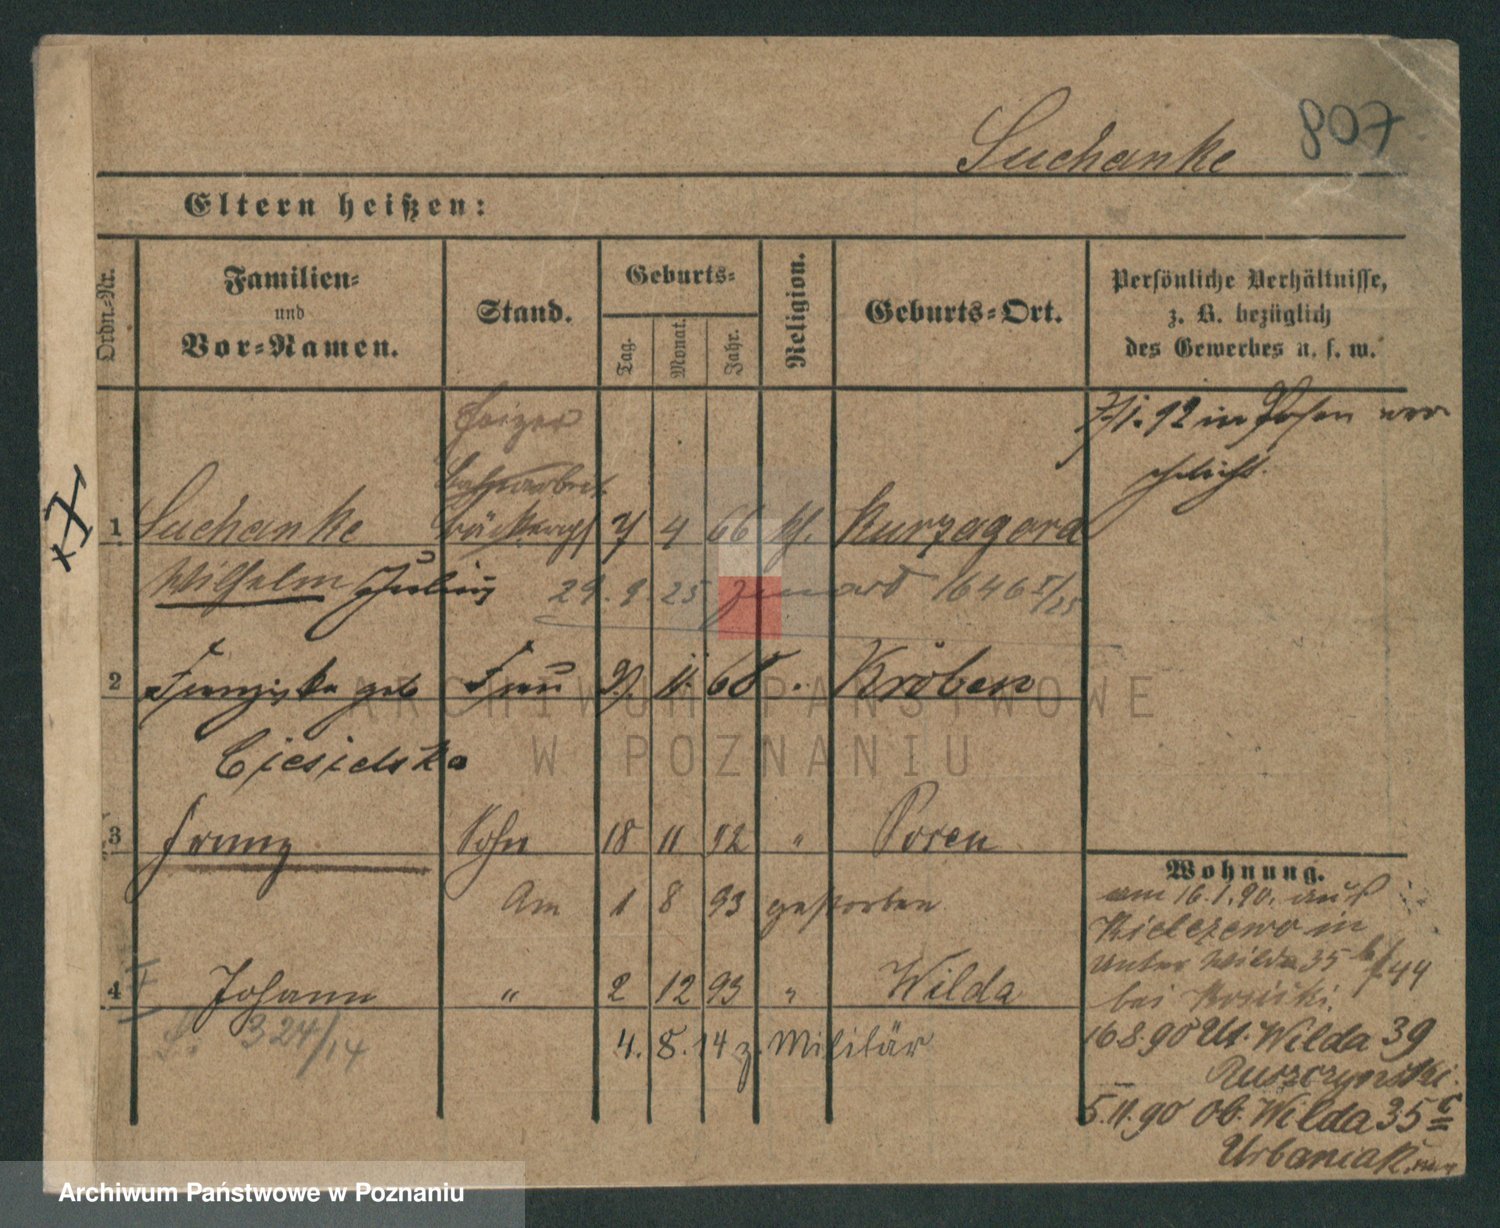 807
Suchanke
Eltern heißen:
Ordn.-Nr.
Familien-
und
Vor-Namen.
Stand.
Geburts-
Tag.
Monat.
Jahr.
Religion.
Geburts-Ort.
Persönliche Verhältnisse,
z. B. bezüglich
des Gewerbes u. s. w.
Heizer
7/1. 92 in Posen ver
ehelicht.
1 Suchanke 7 4 66 kth. Kurzagora
Wilhelm Julius 29. 9. 25 1646
2 Franziska geb Frau 9. 11. 68 Kröben
Ciesielska
3 Franz Sohn 18 11 92 " Posen
Am 1 8 93 gestorben
4 Johann " 2 12 93 " Wilda
324/14
4. 8. 14 z. Militär
Wohnung.
am 16. 1. 90. aus
Kielczewo in
Unter Wilda 35 44
bei
16 8. 90 Ut. Wilda 39
Ruszczynski.
5. 11. 90 Ob. Wilda 35
Urbaniak
ARCHIWUM PAŃSTWOWE
W POZNANIU
Archiwum Państwowe w Poznaniu